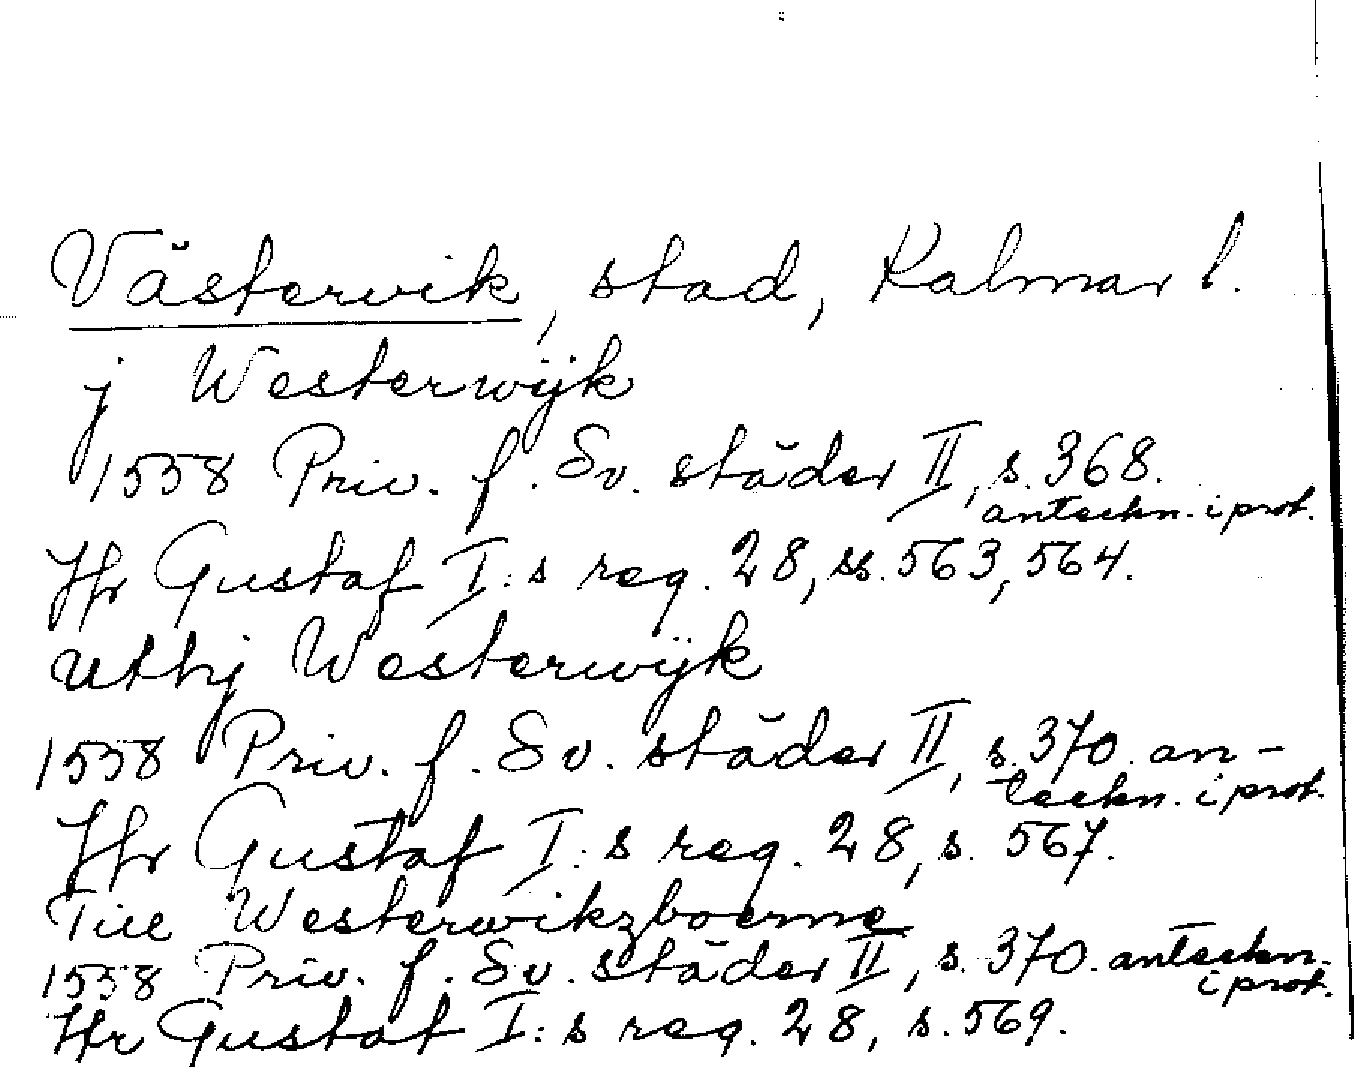 Västervik, stad, Kalmar l.
j Westerwijk
1558 Priv. f. Sv. städer II, s. 368.
anteckn. i prot.
Jfr Gustaf I:s reg. 28, ss. 563, 564.
Uthj Westerwijk
1558 Priv. f. Sv. städer II, s. 370. an-
teckn. i prot.
Jfr Gustaf I:s reg. 28, s. 567.
Till Westerwikzboerne
1558 Priv. f. Sv. städer II, s. 370. anteckn.
i prot.
Jfr Gustaf I:s reg. 28, s. 569.